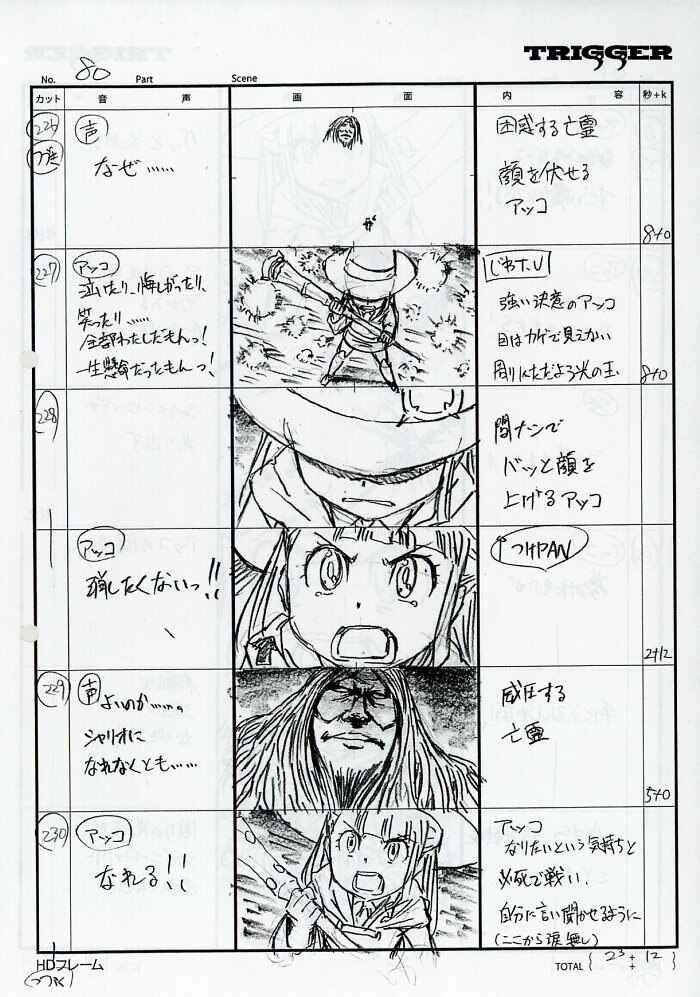 TRIGGER
No. 80 Part Scene
カット 音 声 画 面 内 容 秒+k
226
つづき
声
なぜ……
困惑する亡霊
顔を伏せる
アッコ
8+0
227
アッコ
泣いたり、悔しがったり、
笑ったり、……
全部わたしだもんっ!
一生懸命だったもんっ!
じわT.U
強い決意のアッコ
目はカゲで見えない
周りにただよう光の玉
8+0
228
間ナシで
バッと顔を
上げるアッコ
アッコ
消したくないっ!!
↑つけPAN
2+12
229
声
よいのか……。
シャリオに
なれなくとも……
威圧する
亡霊
5+0
230
アッコ
なれる!!
アッコ
なりたいという気持ちと
必死で戦い、
自分に言い聞かせるように
(ここから涙無し)
HDフレーム
(つづく)
TOTAL { 23 + 12 }
+